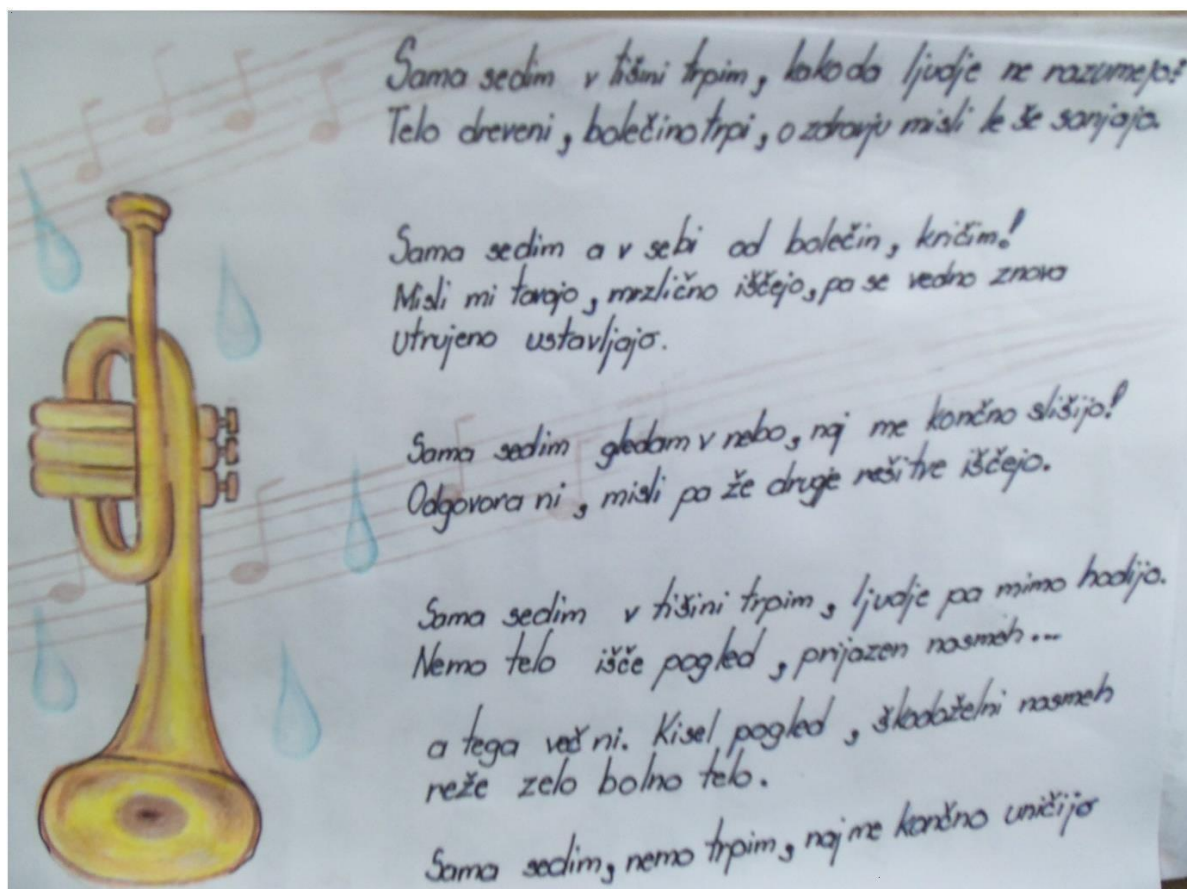 Sama sedim v tišini trpim, kako da ljudje ne razumejo!
Telo dreveni, bolečino trpi, o zdravju misli le še sanjajo.
Sama sedim a v sebi od bolečin, kričim!
Misli mi tavajo, mrzlično iščejo, pa se vedno znova
utrujeno ustavljajo.
Sama sedim gledam v nebo, naj me končno slišijo!
Odgovora ni, misli pa že druge rešitve iščejo.
Sama sedim v tišini trpim, ljudje pa mimo hodijo.
Nemo telo išče pogled, prijazen nasmeh...
a tega več ni. Kisel pogled, škodoželni nasmeh
reže zelo bolno telo.
Sama sedim, nemo trpim, naj me končno uničijo